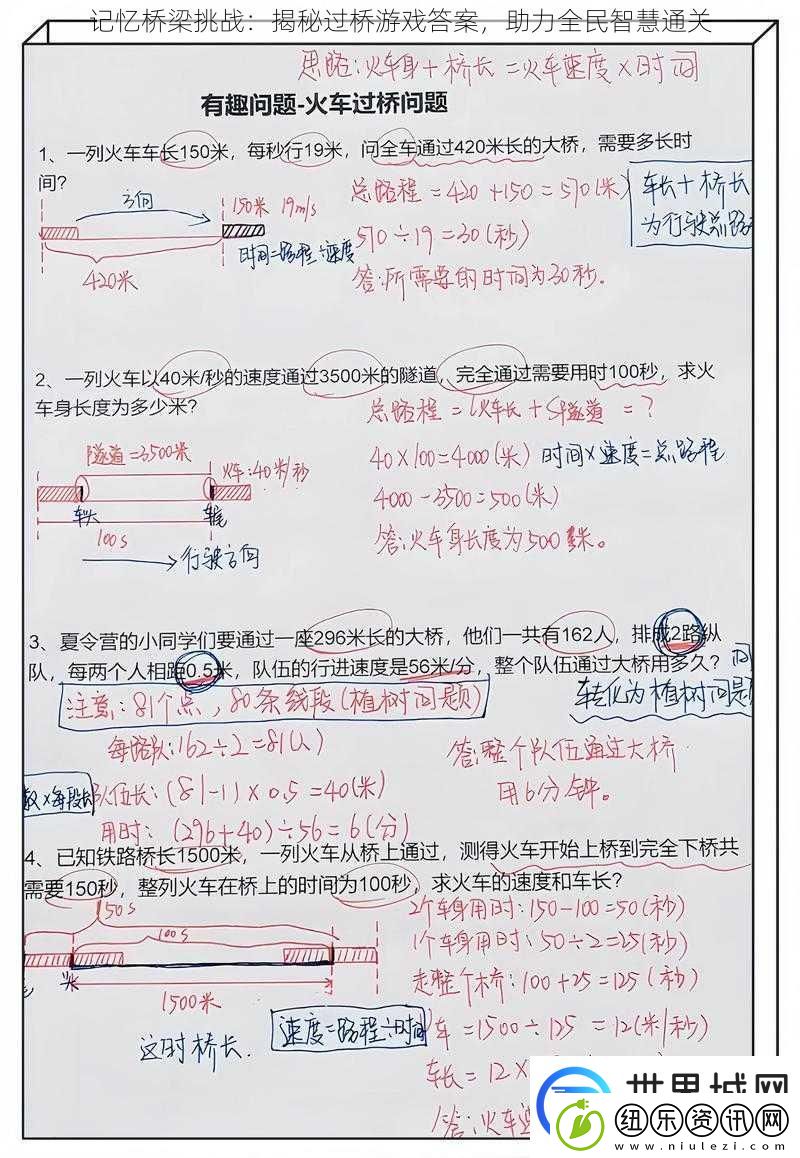 记忆桥梁挑战：揭秘过桥游戏答案，助力全民智慧通关
思路:火车身+桥长=火车速度×时间
有趣问题-火车过桥问题
1、一列火车车长150米，每秒行19米，问全车通过420米长的大桥，需要多长时
间？
方向
150米 19m/s
时间=路程÷速度
420米
总路程=420+150=570(米)
570÷19=30(秒)
答:所需要的时间为30秒.
车长+桥长
为行驶总路
2、一列火车以40米/秒的速度通过3500米的隧道，完全通过需要用时100秒，求火
车身长度为多少米？
总路程=S火车长+S隧道=?
隧道=3500米
火车:40米/秒
40×100=4000(米) 时间×速度=总路程
车头
车尾
4000-3500=500(米)
100s
行驶方向
答:火车身长度为500米。
3、夏令营的小同学们要通过一座296米长的大桥，他们一共有162人，排成2路纵
队，每两个人相距0.5米，队伍的行进速度是56米/分，整个队伍通过大桥用多久？
注意:81个点，80条线段(植树问题)
转化为植树问题
每路队:162÷2=81(人)
答:整个队伍通过大桥
用6分钟。
数×每段长
队伍长:(81-1)×0.5=40(米)
用时:(296+40)÷56=6(分)
4、已知铁路桥长1500米，一列火车从桥上通过，测得火车开始上桥到完全下桥共
需要150秒，整列火车在桥上的时间为100秒，求火车的速度和车长？
150s
100s
1500米
这时桥长.
速度=路程÷时间
2个车身用时:150-100=50(秒)
1个车身用时:50÷2=25(秒)
走整个桥:100+25=125(秒)
车=1500÷125=12(米/秒)
车长=12×
答:火车速
世界城网
纽乐资讯网
www.niulezi.com